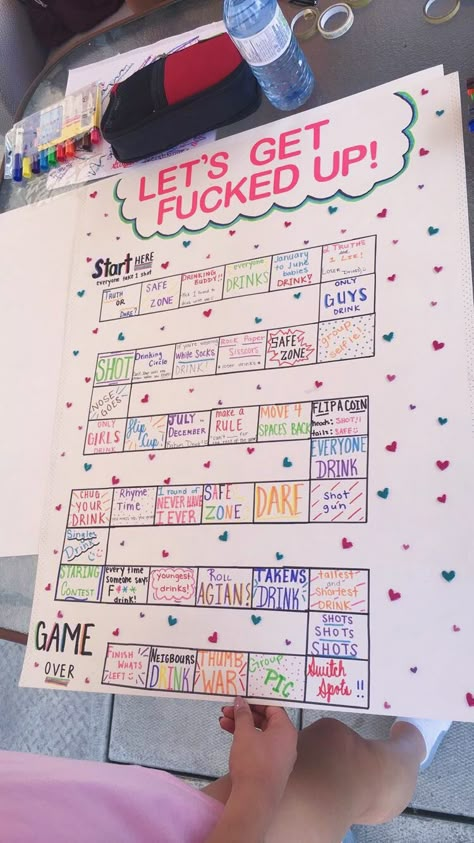 LET'S GET
FUCKED UP!
Start HERE
everyone take 1 shot
TRUTH
OR
DARE?
SAFE
ZONE
DRINKING
BUDDY!
everyone
DRINKS
January
to June
babies
DRINK!
2 TRUTHS
and
1 LIE!
ONLY
GUYS
DRINK
group
selfie!
SAFE
ZONE!
Rock Paper
Scissors
loser drinks
White Socks
DRINK!
Drinking
Circle
SHOT
NOSE
GOES
ONLY
GIRLS
DRINK
flip
Cup
JULY-
DECEMBER
make a
RULE
MOVE 4
SPACES BACK
FLIP A COIN
heads: SHOT!
tails: SAFE
EVERYONE
DRINK
Shot
gun
DARE
SAFE
ZONE
1 round of
NEVER HAVE
I EVER
Rhyme
Time
CHUG
YOUR
DRINK
Singles
Drink
STARING
CONTEST
every time
Someone says
F***
drink!
youngest
drinks!
ROLL
AGIAN!
TAKENS
DRINK
tallest
and
Shortest
DRINK
SHOTS
SHOTS
SHOTS
Switch
Spots!!
Group
PIC
THUMB
WAR!
NEIGBOURS
DRINK
FINISH
WHATS
LEFT
GAME
OVER